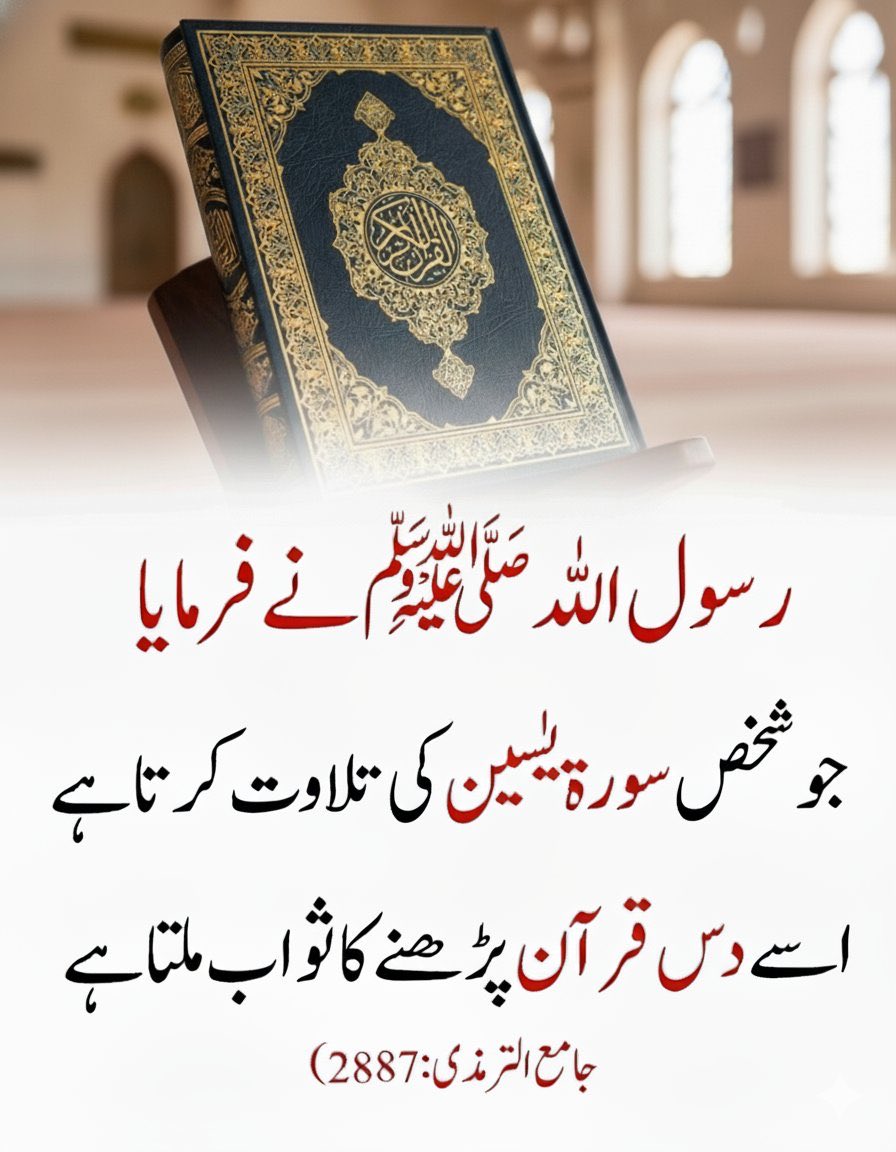 القرآن الكريم
رسول اللہ صَلَّى اللہُ عَلَيْهِ وَسَلَّم نے فرمایا
جو شخص سورۃ یٰسین کی تلاوت کرتا ہے
اسے دس قرآن پڑھنے کا ثواب ملتا ہے
جامع الترمذی:2887)